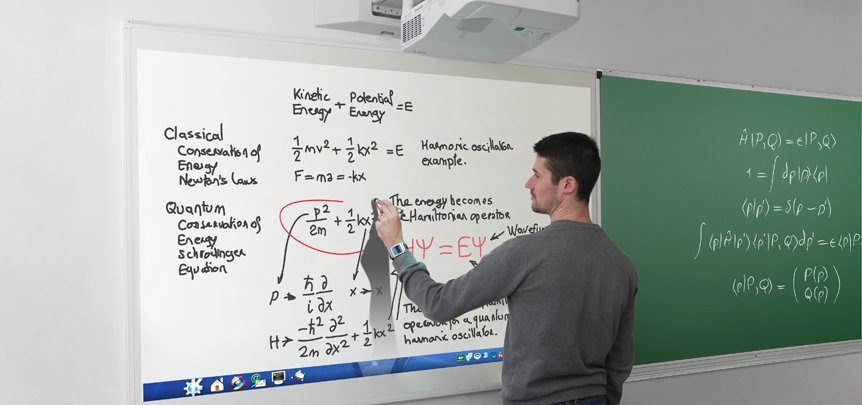 Kinetic Energy + Potential Energy = E
Classical
Conservation of
Energy
Newton's Laws
1/2 mv² + 1/2 kx² = E
Harmonic oscillator
example.
F = ma = -kx
Quantum
Conservation of
Energy
Schrodinger
Equation
p²/2m + 1/2 kx
The energy becomes
Hamiltonian operator
Ψ = EΨ
p → ħ/i ∂/∂x
x → x
H → -ħ²/2m ∂²/∂x² + 1/2 kx²
operator for a quantum
harmonic oscillator.
Ĥ|P,Q⟩ = ϵ|P,Q⟩
1 = ∫dp|p⟩⟨p|
⟨p|p'⟩ = δ(p - p')
∫⟨p|Ĥ|p'⟩⟨p'|P,Q⟩dp' = ϵ⟨p|P
⟨p|P,Q⟩ = (P(p) Q(p))